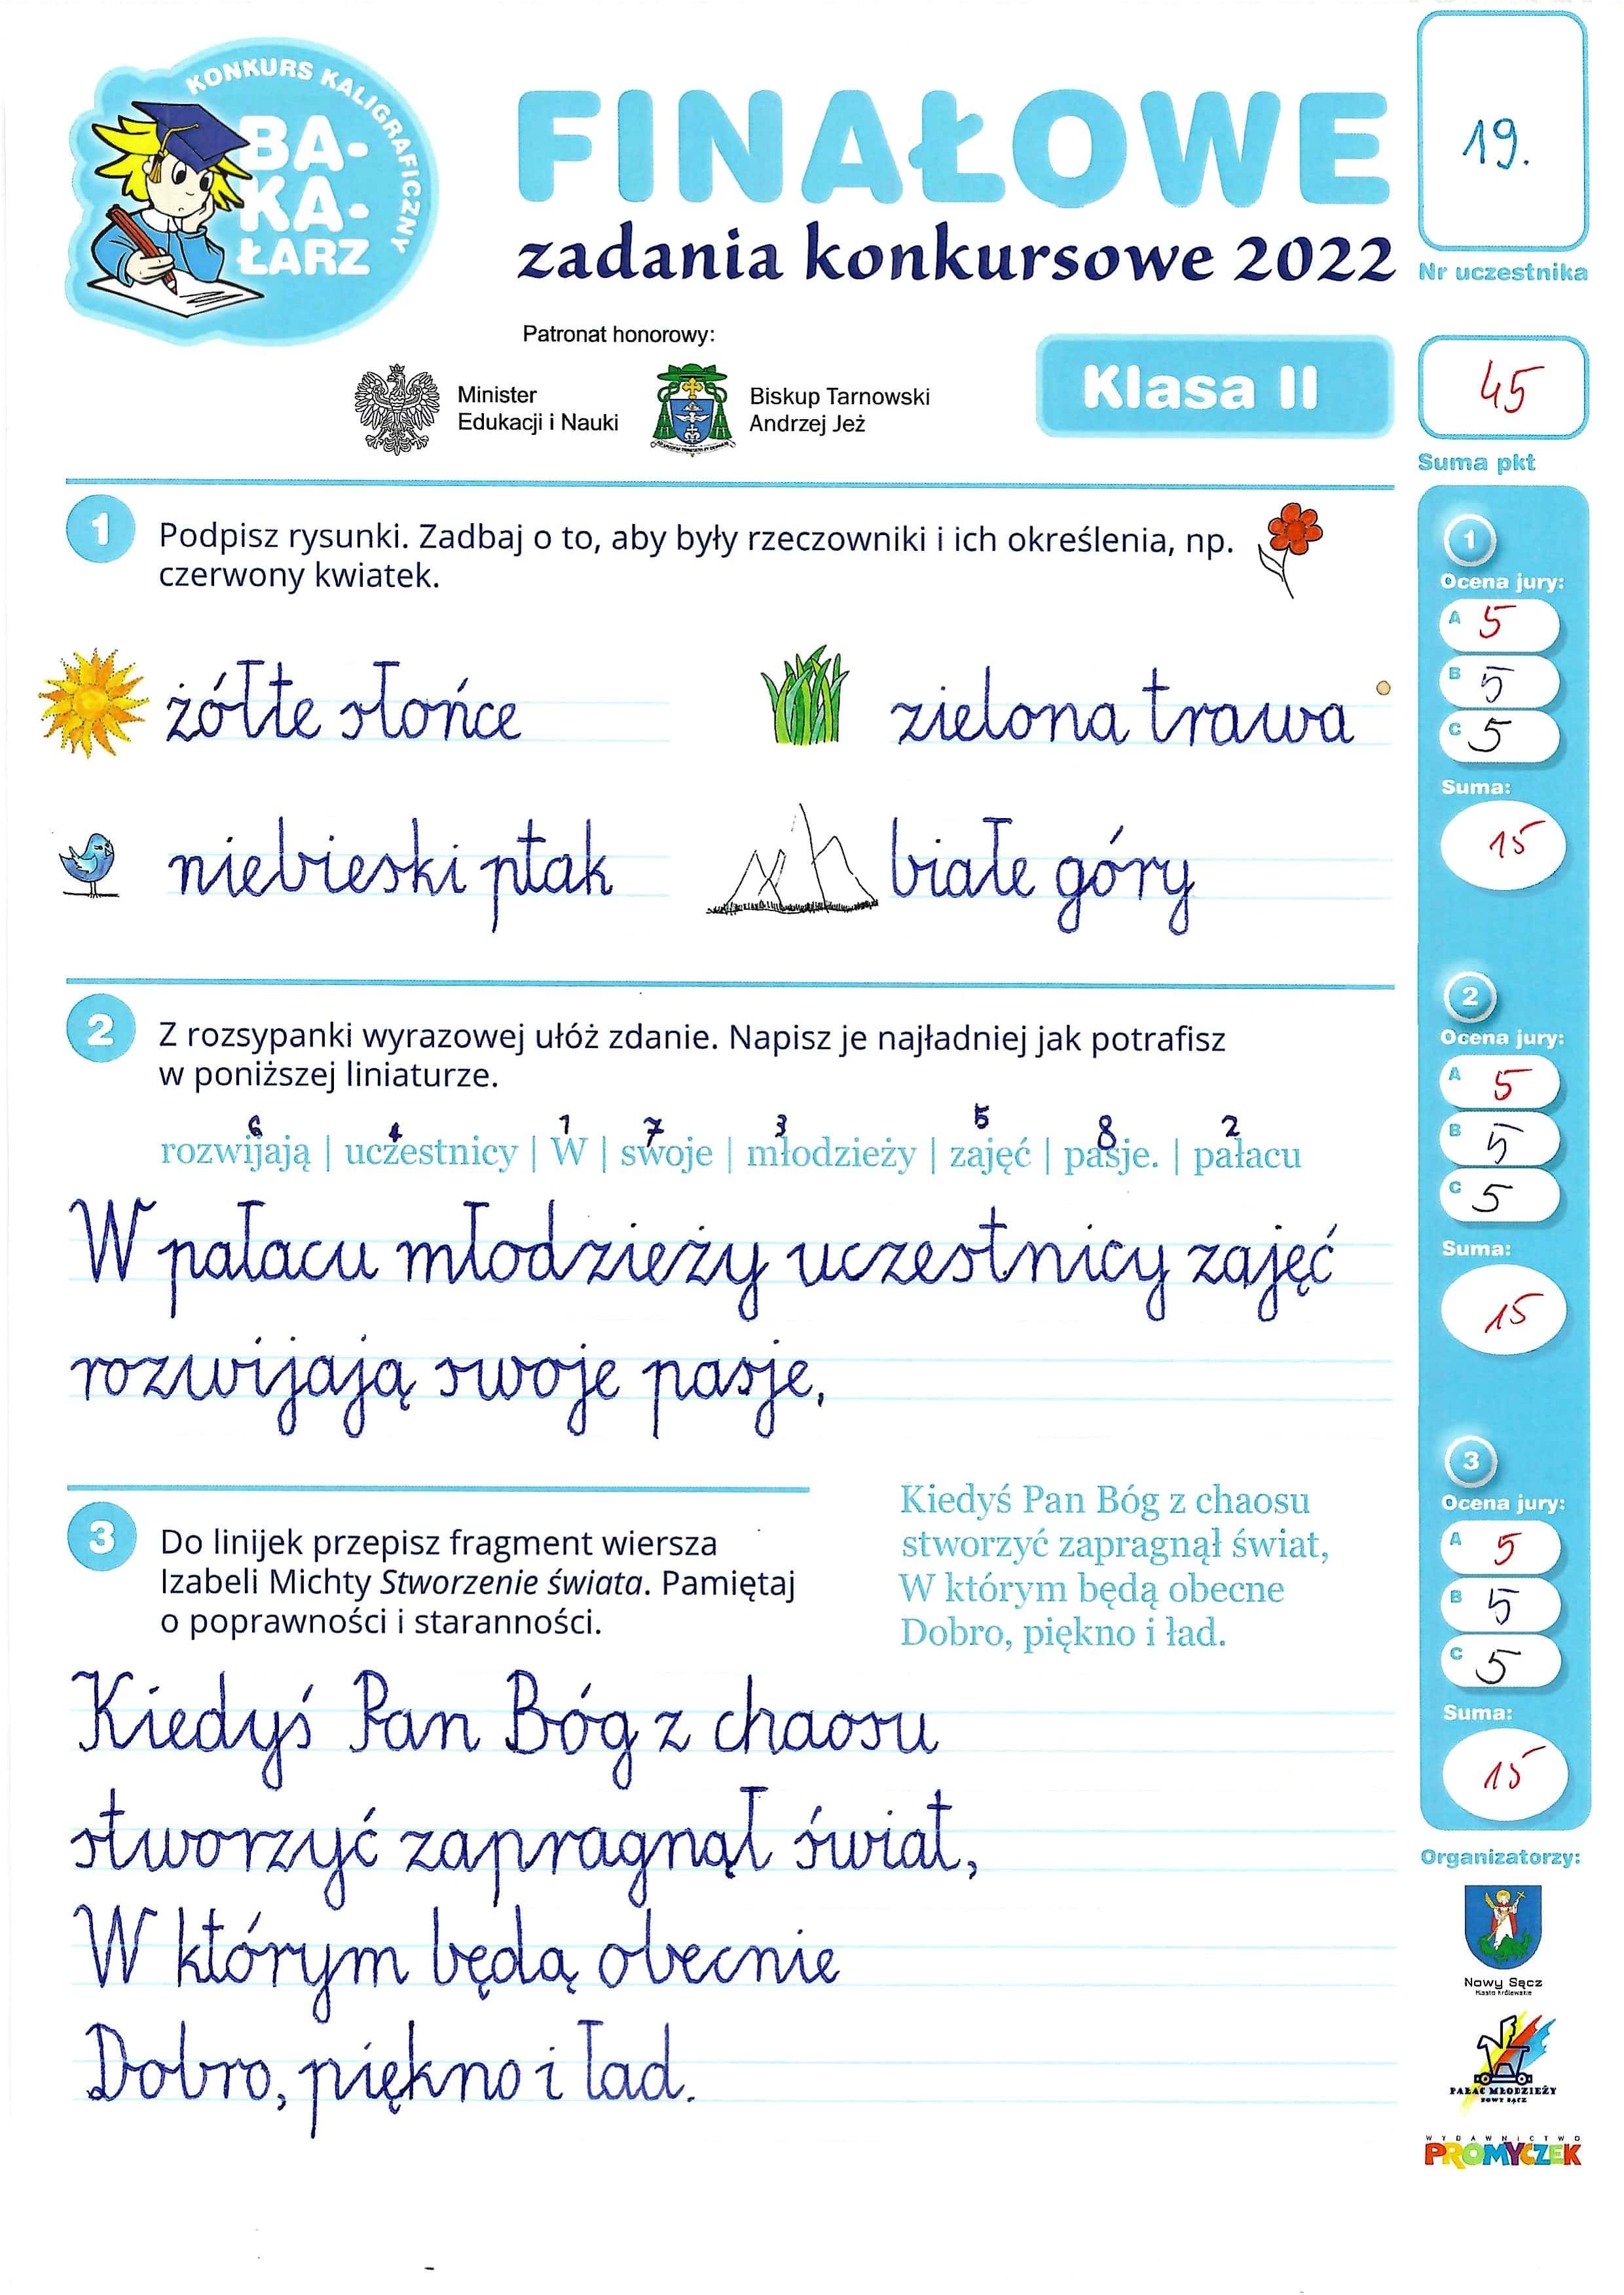 KONKURS KALIGRAFICZNY
BA-
KA-
ŁARZ
FINAŁOWE
zadania konkursowe 2022
19.
Nr uczestnika
Patronat honorowy:
Minister
Edukacji i Nauki
Biskup Tarnowski
Andrzej Jeż
Klasa II
45
Suma pkt
1
Podpisz rysunki. Zadbaj o to, aby były rzeczowniki i ich określenia, np.
czerwony kwiatek.
żółte słońce
zielona trawa
niebieski ptak
białe góry
1
Ocena jury:
A 5
B 5
C 5
Suma:
15
2
Z rozsypanki wyrazowej ułóż zdanie. Napisz je najładniej jak potrafisz
w poniższej liniaturze.
6 4 1 7 3 5 8 2
rozwijają | uczestnicy | W | swoje | młodzieży | zajęć | pasje. | pałacu
W pałacu młodzieży uczestnicy zajęć
rozwijają swoje pasje.
2
Ocena jury:
A 5
B 5
C 5
Suma:
15
3
Do linijek przepisz fragment wiersza
Izabeli Michty Stworzenie świata. Pamiętaj
o poprawności i staranności.
Kiedyś Pan Bóg z chaosu
stworzyć zapragnął świat,
W którym będą obecne
Dobro, piękno i ład.
Kiedyś Pan Bóg z chaosu
stworzyć zapragnął świat,
W którym będą obecnie
Dobro, piękno i ład.
3
Ocena jury:
A 5
B 5
C 5
Suma:
15
Organizatorzy:
Nowy Sącz
Miasto Królewskie
PAŁAC MŁODZIEŻY
NOWY SĄCZ
WYDAWNICTWO
PROMYCZEK